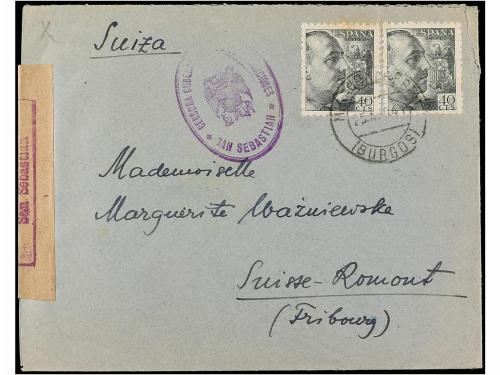 Suiza
ESPAÑA
ESPAÑA
40
CTS
40
CTS
CENSURA GUBERNATIVA
SAN SEBASTIAN
(BURGOS)
San Sebastián
Mademoiselle
Marguerite Ważniewska
Suisse-Romont
(Fribourg)